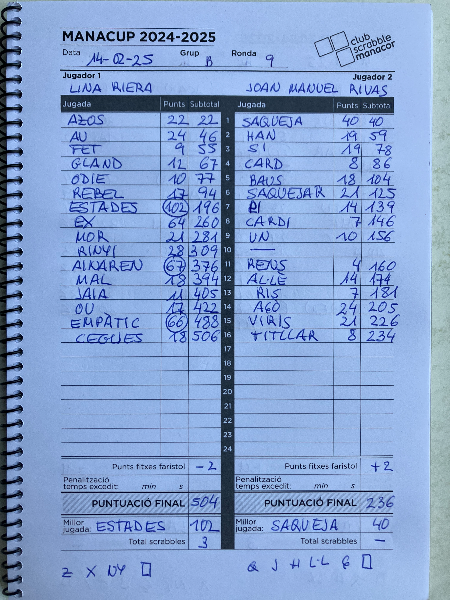 MANACUP 2024-2025
club scrabble manacor
Data 14-02-25 Grup B Ronda 9
Jugador 1 Jugador 2
LINA RIERA JOAN MANUEL RIVAS
Jugada Punts Subtotal Jugada Punts Subtotal
AZOS 22 22 1 SAQUEJA 40 40
AU 24 46 2 HAN 19 59
FET 9 55 3 SI 19 78
GLAND 12 67 4 CARD 8 86
ODIE 10 77 5 BAUS 18 104
REBEL 17 94 6 SAQUEJAR 21 125
ESTADES 102 196 7 PI 14 139
EX 64 260 8 CARDI 7 146
MOR 21 281 9 UN 10 156
RINYI 28 309 10 —
AINAREN 67 376 11 RENS 4 160
MAL 18 394 12 AL·LE 14 174
JAIA 11 405 13 RIS 7 181
OU 17 422 14 AGO 24 205
EMPÀTIC 66 488 15 VIRIS 21 226
CEGUES 18 506 16 TITLLAR 8 234
17
18
19
20
21
22
23
24
Punts fitxes faristol -2 Punts fitxes faristol +2
Penalització temps excedit: min s Penalització temps excedit: min s
PUNTUACIÓ FINAL 504 PUNTUACIÓ FINAL 236
Millor jugada: ESTADES 102 Millor jugada: SAQUEJA 40
Total scrabbles 3 Total scrabbles –
Z X NY Q J H L·L Ç